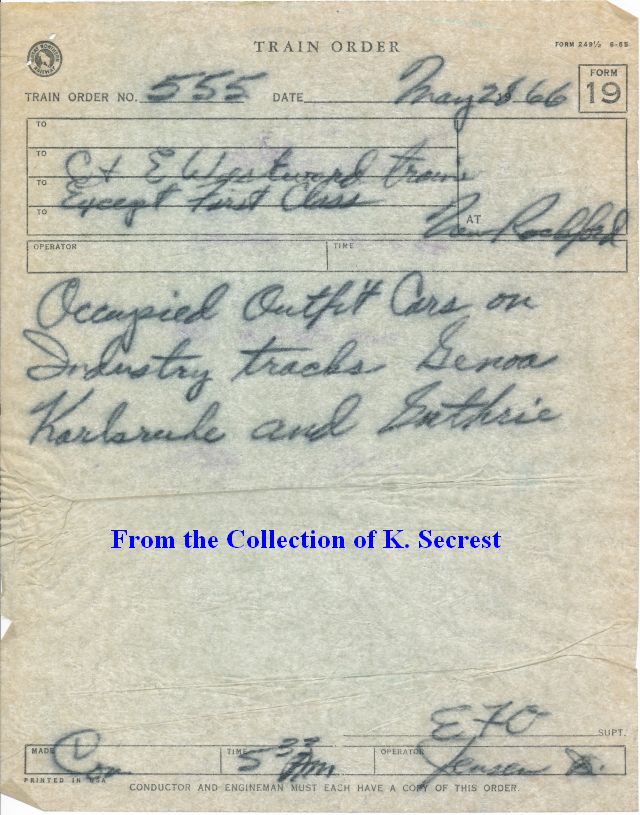 GREAT NORTHERN RAILWAY
TRAIN ORDER
FORM 249½ 6-65
TRAIN ORDER NO. 555 DATE May 28 1966
FORM 19
TO
TO C+E Westward trains
TO Except First Class
TO
AT New Rockford
OPERATOR TIME
Occupied Outfit Cars on
Industry tracks Genoa
Karlsruhe and Guthrie
From the Collection of K. Secrest
EFO SUPT.
MADE Com TIME 5 33 PM OPERATOR Jensen
PRINTED IN USA
CONDUCTOR AND ENGINEMAN MUST EACH HAVE A COPY OF THIS ORDER.